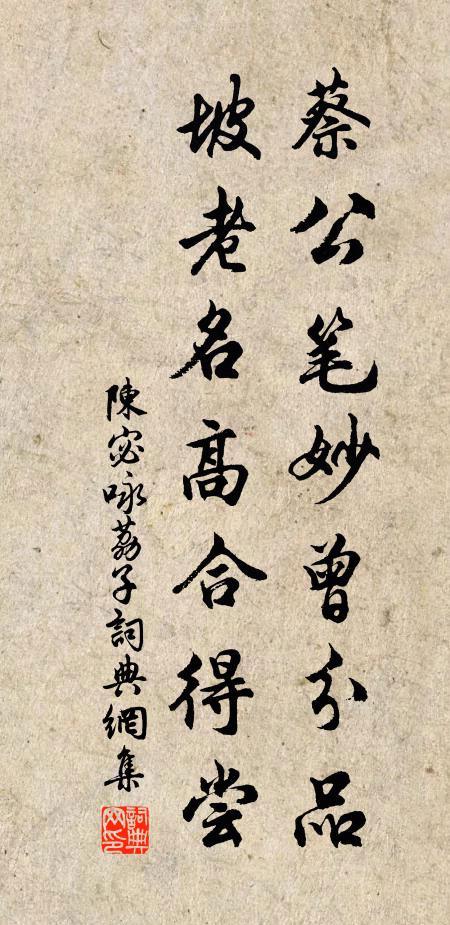 蔡公笔妙曾分品
坡老名高合得尝
陳宓咏荔子詞典網集
詞典網印